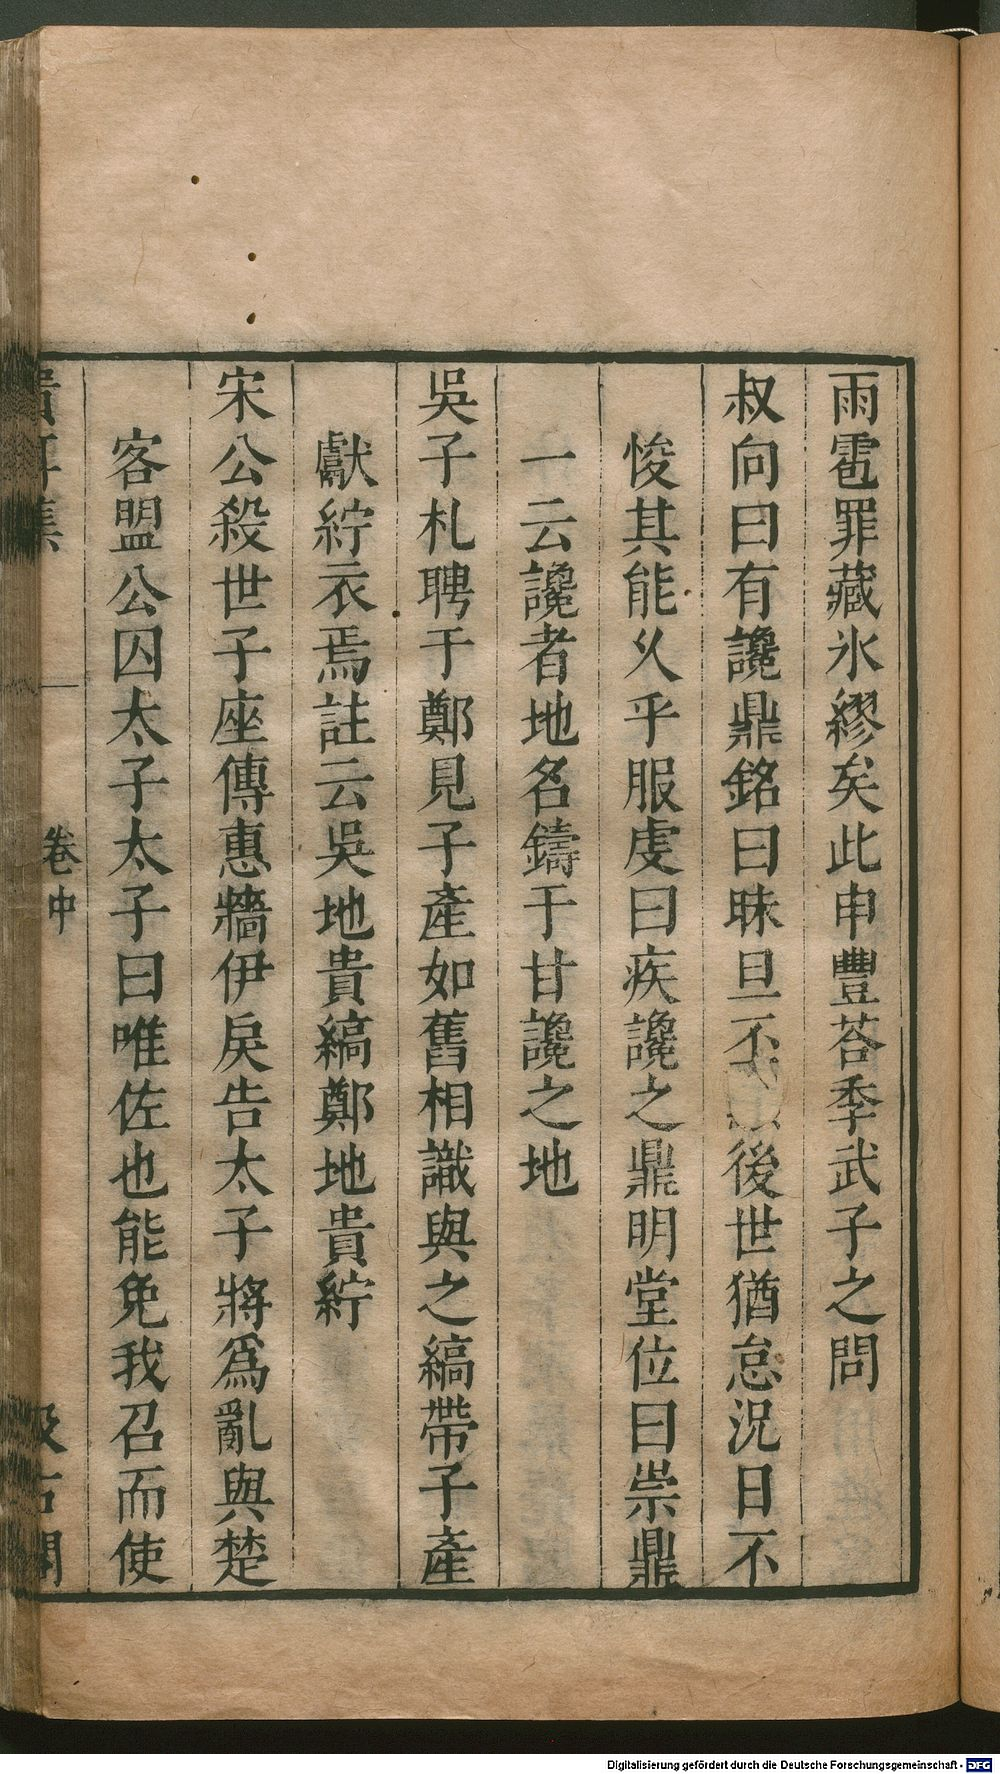 雨雹罪藏氷繆矣此申豐荅季武子之問
叔向曰有讒鼎銘曰昧旦不後世猶怠况日不
悛其能乆乎服虔曰疾讒之鼎明堂位曰崇鼎
一云讒者地名鑄于甘讒之地
吳子札聘于鄭見子產如舊相識與之縞帶子產
獻紵衣焉註云吳地貴縞鄭地貴紵
宋公殺世子座傳惠牆伊戾告太子將爲亂與楚
客盟公囚太子太子曰唯佐也能免我召而使
卷中
Digitalisierung gefördert durch die Deutsche Forschungsgemeinschaft - DFG